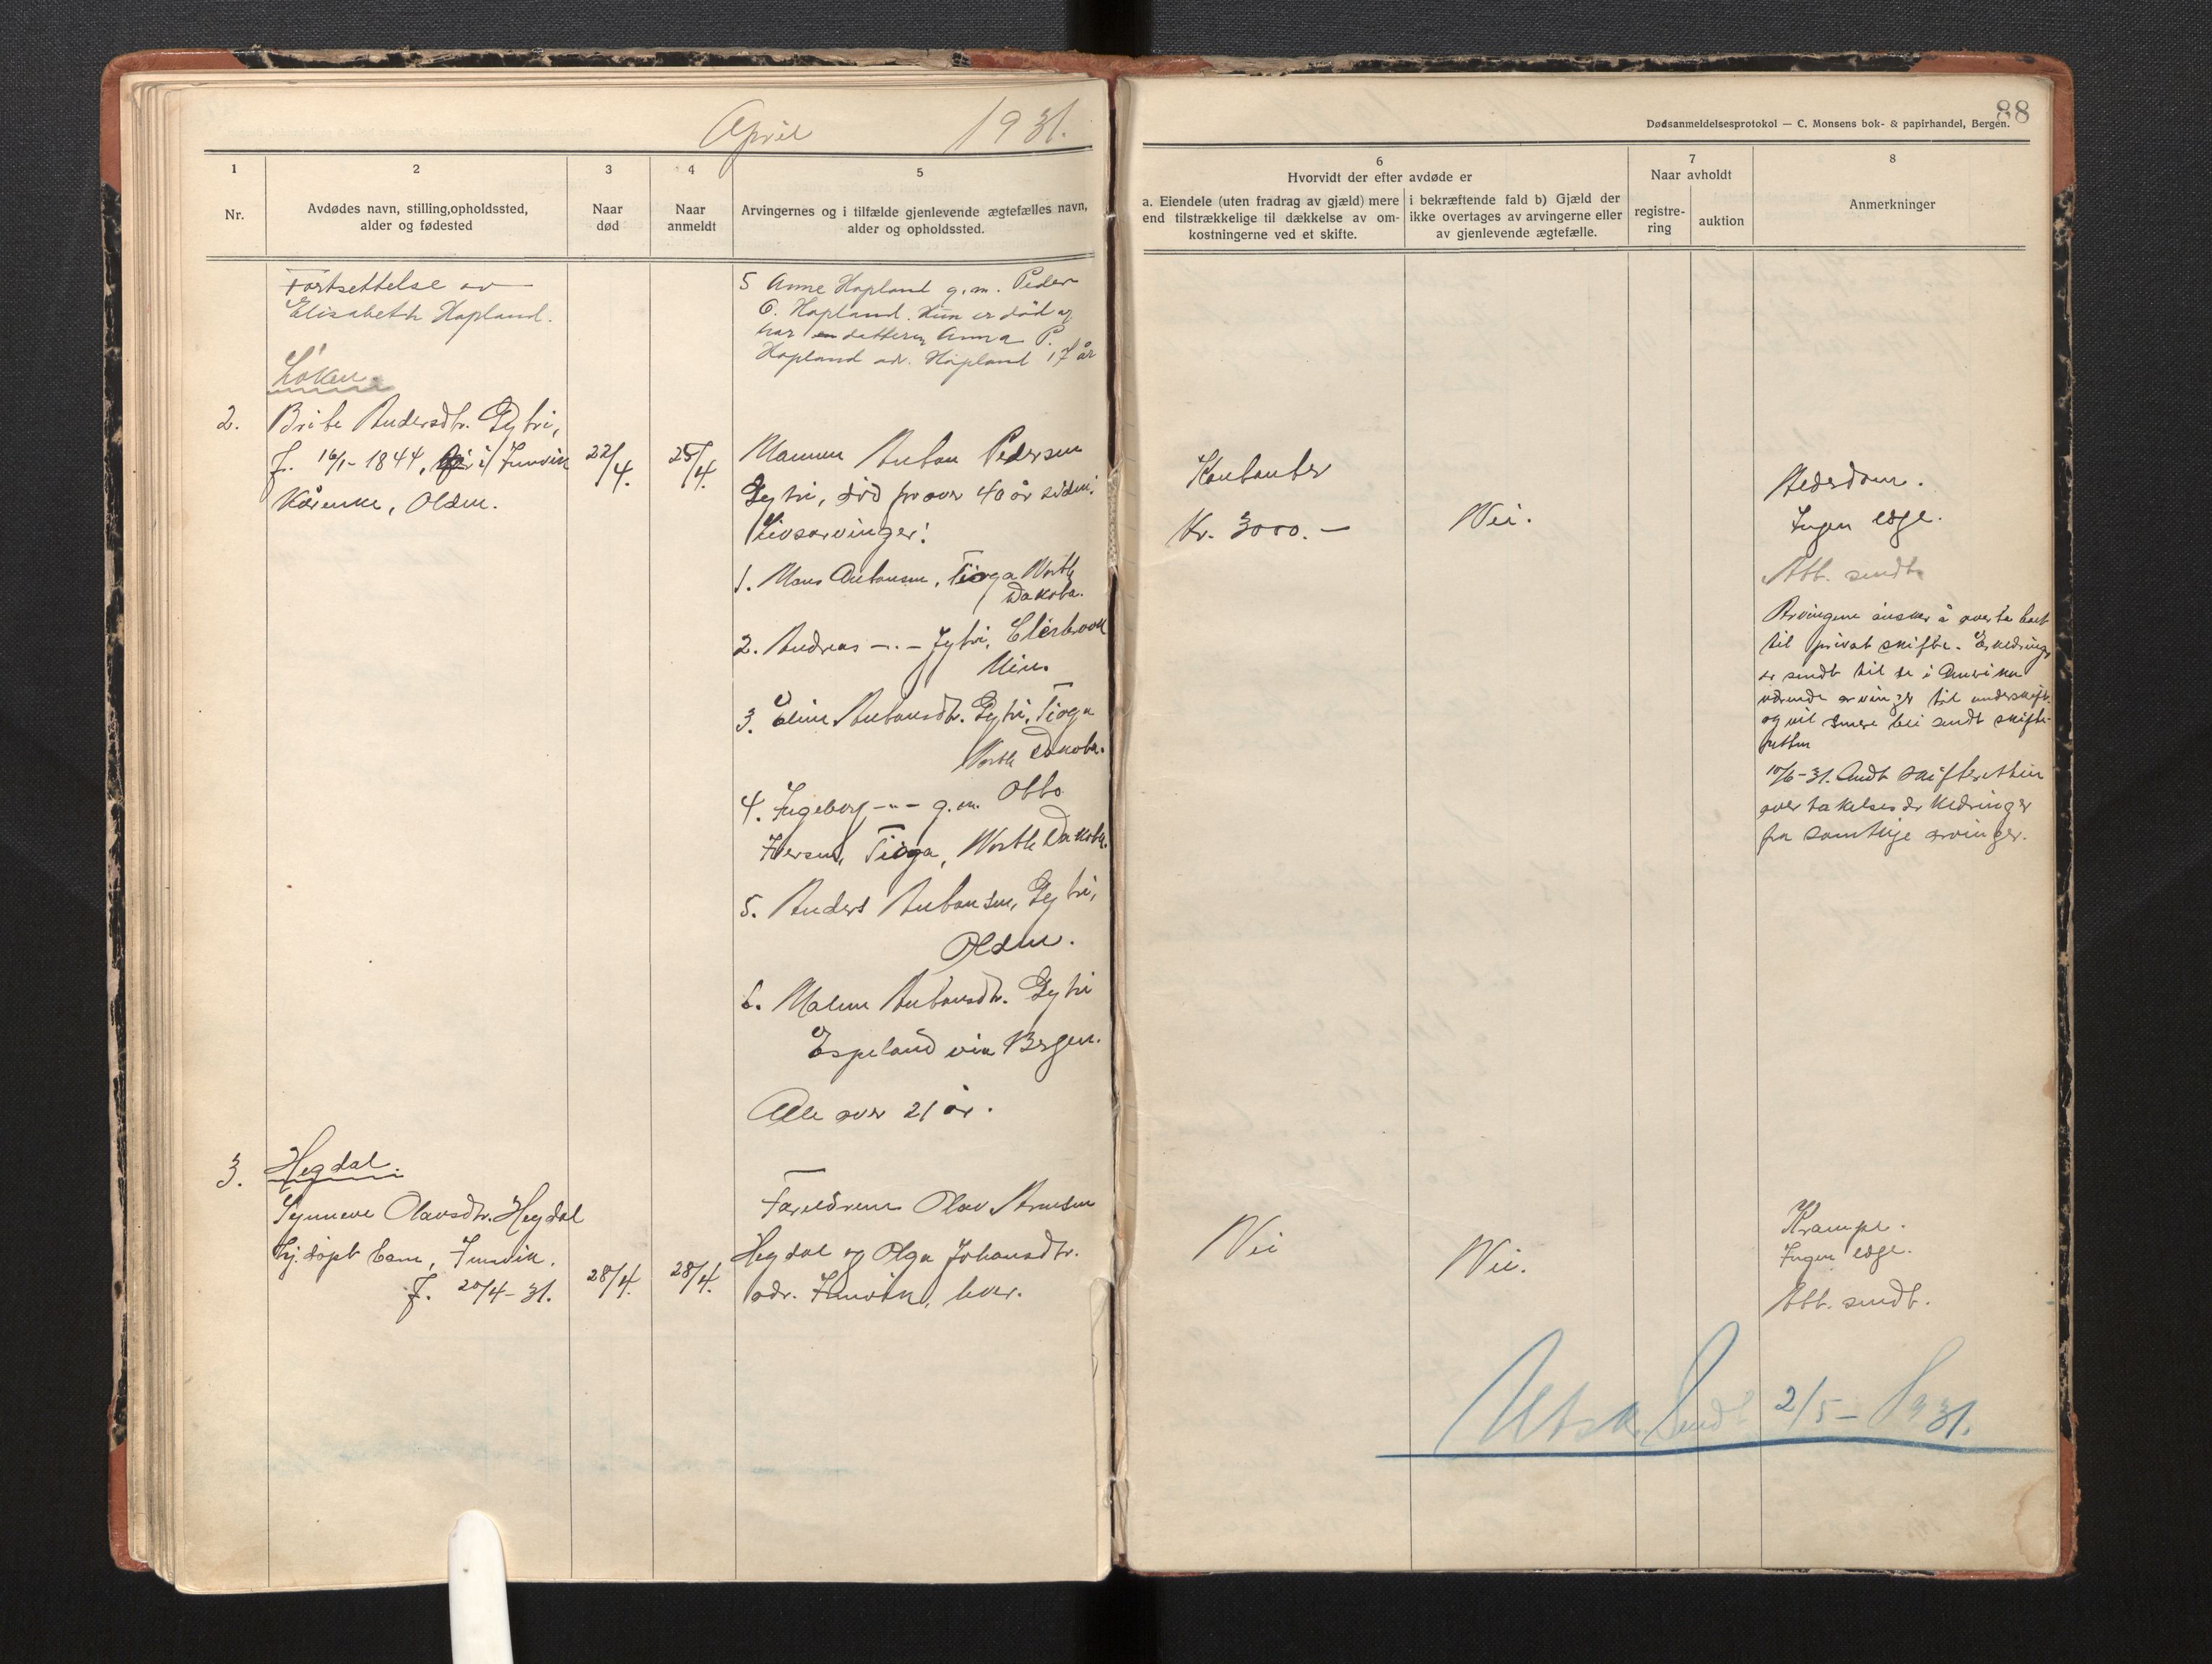 April 1931.
88
Dødsanmeldelsesprotokol — C. Monsens bok- & papirhandel, Bergen.
1
Nr.
2
Avdødes navn, stilling,opholdssted,
alder og fødested
3
Naar
død
4
Naar
anmeldt
5
Arvingernes og i tilfælde gjenlevende ægtefælles navn,
alder og opholdssted.
6
Hvorvidt der efter avdøde er
a. Eiendele (uten fradrag av gjæld) mere
end tilstrækkelige til dækkelse av om-
kostningerne ved et skifte.
i bekræftende fald b) Gjæld der
ikke overtages av arvingerne eller
av gjenlevende ægtefælle.
7
Naar avholdt
registre-
ring
auktion
8
Anmerkninger
Fortsettelse av
Elisabeth Hopland.
5 Anne Hopland g.m. Peder
O. Hopland. Hun er död og
har en datter Anna P.
Hopland adr. Hopland 17 år
Løken
2.
Brite Andersdtr. Gytri,
f. 16/1-1844, i Innvik
Olden.
22/4.
25/4.
Mannen Anton Pedersen
Gytri, död for over 40 år siden.
Livsarvinger:
1. Mons Antonsen, Tioga North
Dakota.
2. Andreas -"- Gytri,
Minn.
3. Eline Antonsdtr. Gytri, Tioga
North Dakota.
4. Ingeborg -"- g.m. Otto
Iversen, Tioga, North Dakota.
5. Anders Antonsen, Gytri,
Olden.
6. Malene Antonsdtr. Gytri
Espeland via Bergen.
Alle over 21 år.
Kontanter
Kr. 3000.-
Nei.
Alderdom.
Ingen læge.
Att. sendt.
Arvingene ønsker å overta boet
til privat skifte. Erklæringer
er sendt til de i Amerika
værende arvinger til underskrift
og vil senere bli sendt skifte-
retten
10/6-31. Sendt skifteretten
overtakelseserklæringer
fra samtlige arvinger.
3.
Hegdal.
Synneve Olavsdtr. Hegdal
hj.döpt barn, Innvik.
f. 20/4-31.
28/4.
28/4.
Foreldrene Olav Arnesen
Hegdal og Olga Johansdtr.
adr. Innvik, lever.
Nei
Nei.
Krampe.
Ingen læge.
Att. sendt.
Utsk. Sendt 2/5-1931.